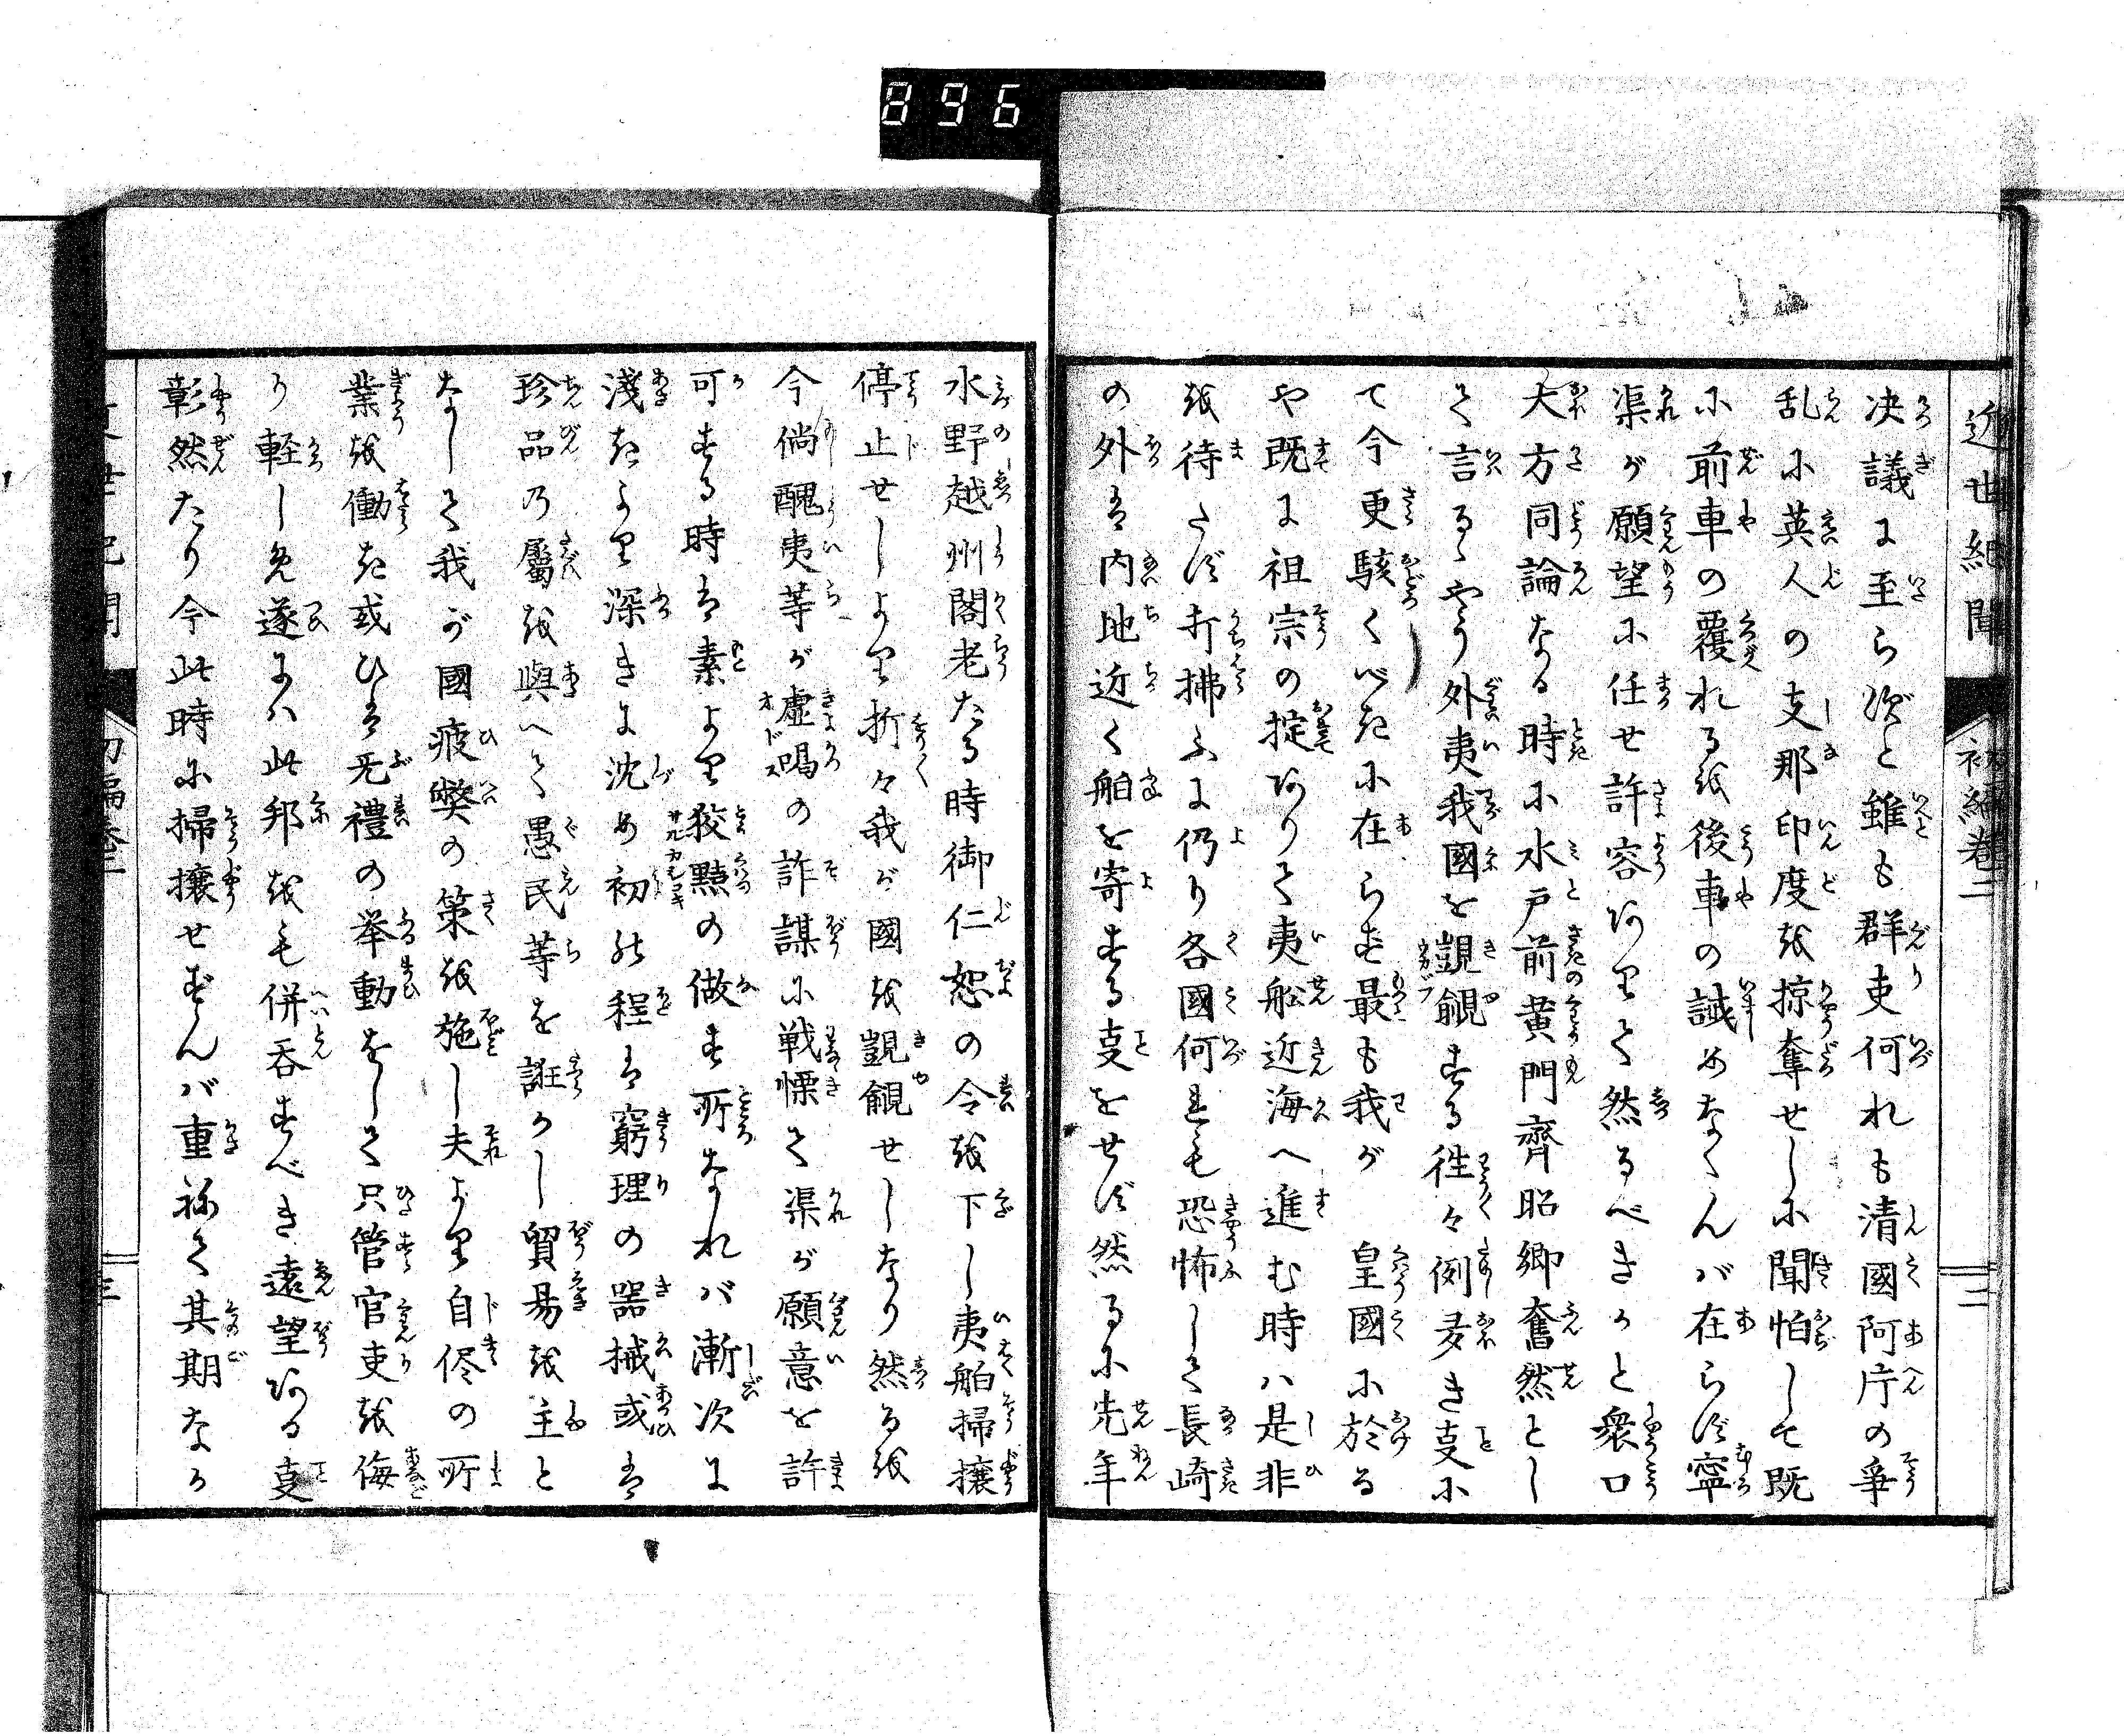 896
近世紀聞
初編巻二
三
決議に至らずと雖も群吏何れも清國阿片の爭
乱に英人の支那印度を掠奪せしに聞怕して既
に前車の覆れるを後車の誡めなくんば在らず寧
渠が願望に任せ許容ありて然るべきかと衆口
大方同論なる時に水戸前黄門齊昭卿奮然とし
て言るゝやう外夷我國を覬覦する徃々例多き事に
て今更駭くべきに在らず最も我が 皇國に於る
や既に祖宗の掟ありて夷舩近海へ進む時ハ是非
を待たず打拂ふに仍り各國何れも恐怖して長崎
の外は内地近く舶を寄する事をせず然るに先年
水野越州閣老たる時御仁恕の令を下し夷舶掃攘
停止せしより折々我が國を覬覦せしなり然るを
今倘醜夷等が虚喝の詐謀に戦慄て渠が願意を許
可する時は素より狡黠の做す所なれば漸次に
淺きより深きに沈め初の程は窮理の器械或は
珍品の屬を與へて愚民等を誑かし貿易を主と
なして我が國疲弊の策を施し夫より自侭の所
業を働き或ひは无禮の挙動をして只管官吏を侮
り軽しめ遂にハ此邦をも併呑すべき遠望ある事
彰然たり今此時に掃攘せずんば重ねて其期なか